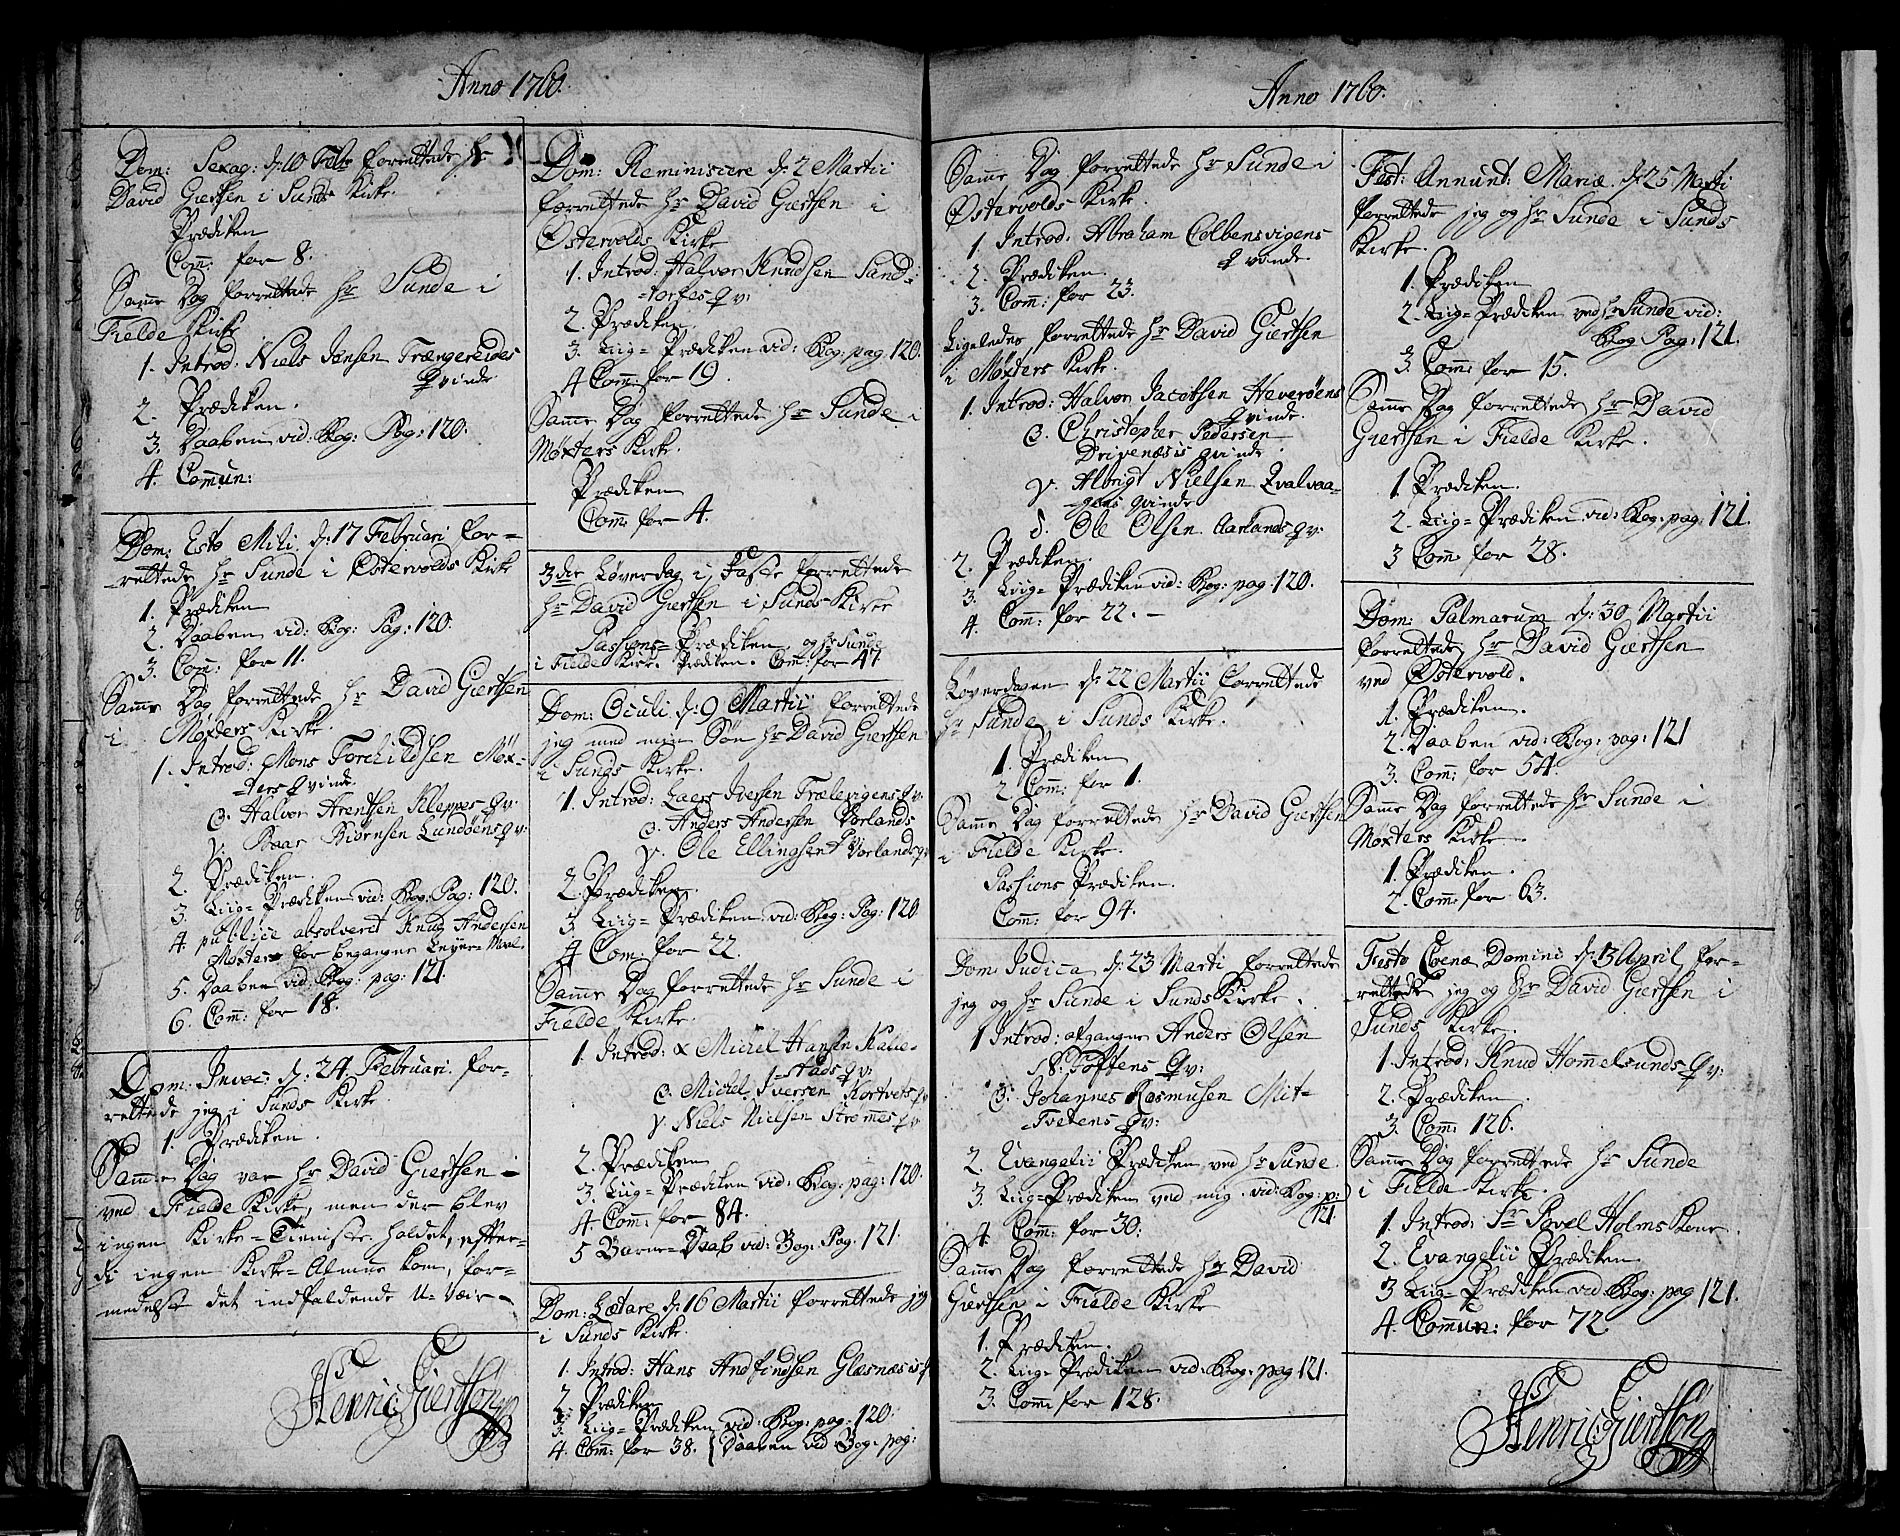 Anno 1760.
Dom: Sexag: d: 10 Febr forrettede hr
David Giertsen i Sunds Kirke.
Prædiken
Com: for 8.
Samme Dag forrettede hr Sunde i
Fielde Kirke
1. Introd: Niels Jansen Trængereides
Qvinde
2. Prædiken.
3. Daaben vid: Bog: Pag: 120.
4. Comun:
Dom: Esto Mihi d: 17 Februari for-
rettede hr Sunde i Østervolds Kirke
1. Prædiken
2. Daaben vid: Bog: Pag: 120.
3. Com: for 11.
Samme Dag forrettede hr David Giertsen
i Møxters Kirke.
1. Introd: Mons Torchildsen Møx-
ters Qvinde.
Halvor Arentsen Kleppes Qv:
Baar Biørnsen Lundøens Qv:
2. Prædiken.
3. Liig-Prædiken vid: Bog: Pag: 120.
4. publice absolveret Knud Andersen
Møxter for begangne Leyer-Maal
5. Daaben vid: Bog: pag: 121.
6. Com: for 18.
Dom: Invoc: d: 24. Februari for-
rettede jeg i Sunds Kirke.
1. Prædiken.
Samme Dag var hr David Giertsen
ved Fielde Kirke, men der blev
ingen Kirke-Tieniste holdet, efter-
di ingen Kirke-Almue kom, for-
medelst det indfaldende U-Veir
Henric Giertson
Dom: Reminiscere d: 2 Martii
forrettede hr David Giertsen i
Østervolds Kirke
1. Introd: Halvor Knudsen Sand-
torfes Qv:
2. Prædiken.
3. Liig-Prædiken vid: Bog: pag: 120.
4 Com: for 19.
Samme Dag forrettede hr Sunde i
Møxters Kirke.
Prædiken
Com: for 4.
3die Løverdag i Faste forrettede
hr David Giertsen i Sunds Kirke
Passions-Prædiken og hr Sunde
i Fielde Kirke Prædiken. Com: for 47
Dom: Oculi d: 9 Martii forrettede
jeg med min Søn hr David Giertsen
i Sunds Kirke.
1. Introd: Laers Iversen Trælevigens Qv:
Anders Andersen Vorlands
Ole Ellingsen Vorlands Qv
2. Prædiken.
3. Liig-Prædiken vid: Bog: Pag: 120
4 Com: for 22.
Samme Dag forrettede hr Sunde i
Fielde Kirke.
1. Introd: Michel Hansen Kalle-
stads Qv:
Michel Iversen Kortvets Qv
Niels Nielsen Strømes Qv
2. Prædiken
3. Liig-Prædiken vid: Bog: pag: 120.
4. Com: for 84.
5 Barne-Daab vid: Bog: Pag: 121.
Dom: Lætare d: 16 Martii forrettede jeg
i Sunds Kirke.
1. Introd: Hans Andfindsen Glæsnæs
2. Prædiken
3. Liig-Prædiken vid: Bog: pag: 120.
4. Com: for 38. Daaben vid Bog: pag:
Anno 1760.
Samme Dag forrettede hr Sunde i
Østervolds Kirke.
1. Introd: Abraham Colbensvigens
Qvinde.
2. Prædiken.
3. Com: for 23.
Ligeledes forrettede hr David Giertsen
i Møxters Kirke.
1. Introd: Halvor Jacobsen Heverøens
Qvinde.
Christopher Pedersen
Drivenæsis Qvinde.
Albrigt Nielsen Qvalvaa-
gens Qvinde
Ole Olsen Aarlands Qv:
2. Prædiken.
3. Liig-Prædiken vid: Bog: pag: 120.
4. Com: for 22.
Løverdagen d: 22 Martii forrettede
hr Sunde i Sunds Kirke.
1. Prædiken
2. Com: for 1.
Samme Dag forrettede hr David Giertsen
i Fielde Kirke.
Passions Prædiken.
Com: for 94.
Dom: Judica d: 23 Marti forrettede
jeg og hr Sunde i Sunds Kirke.
1 Introd: afgangne Anders Olsen
Toftens Qv:
Johannes Rasmusen Mit-
Tvetens Qv:
2. Evangelii Prædiken ved hr Sunde.
3 Liig-Prædiken ved mig vid: Bog: p:
121.
4. Com: for 30.
Samme Dag forrettede hr David
Giertsen i Fielde Kirke
1. Prædiken.
2. Liig-Prædiken vid: Bog: pag 121.
3. Com: for 128.
Fest: Annunt: Mariæ. d: 25 Marti
forrettede jeg og hr Sunde i Sunds
Kirke.
1. Prædiken
2. Liig-Prædiken ved hr Sunde vid:
Bog Pag: 121.
3. Com: for 15.
Samme Dag forrettede hr David
Giertsen i Fielde Kirke.
1. Prædiken.
2. Liig-Prædiken vid: Bog: pag: 121.
3 Com: for 28.
Dom: Palmarum d: 30 Martii
forrettede hr David Giertsen
ved Østervold.
1. Prædiken.
2. Daaben vid: Bog: pag: 121
3. Com: for 54.
Samme Dag forrettede hr Sunde i
Møxters Kirke
1. Prædiken.
2. Com: for 63.
Festo Coenæ Domini d: 3 April for-
rettede jeg og hr David Giertsen i
Sunds Kirke.
1. Introd: Knud Hommelsunds Qv:
2. Prædiken.
3. Com: 126.
Samme Dag forrettede hr Sunde
i Fielde Kirke.
1. Introd: Sr Povel Holms Kone.
2. Evangelii Prædiken
3 Liig-Prædiken vid Bog: pag 121.
4. Comun: for 72.
Henric Giertson